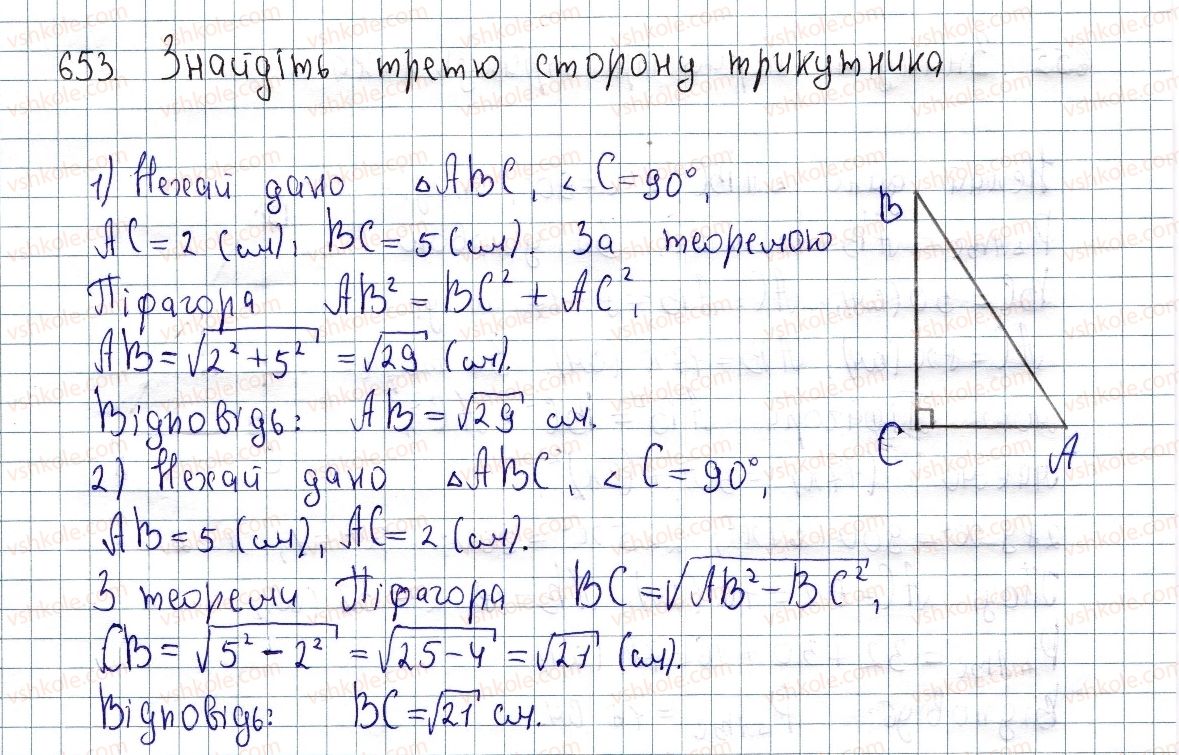 653. Знайдіть третю сторону трикутника
1) Нехай дано △ABC, < C = 90°,
AC = 2 (см), BC = 5 (см). За теоремою
Піфагора AB² = BC² + AC²,
AB = √(2² + 5²) = √29 (см).
Відповідь: AB = √29 см.
2) Нехай дано △ABC, < C = 90°,
AB = 5 (см), AC = 2 (см).
З теореми Піфагора BC = √(AB² − BC²),
CB = √(5² − 2²) = √(25 − 4) = √21 (см).
Відповідь: BC = √21 см.
B
C
A
vshkole.com